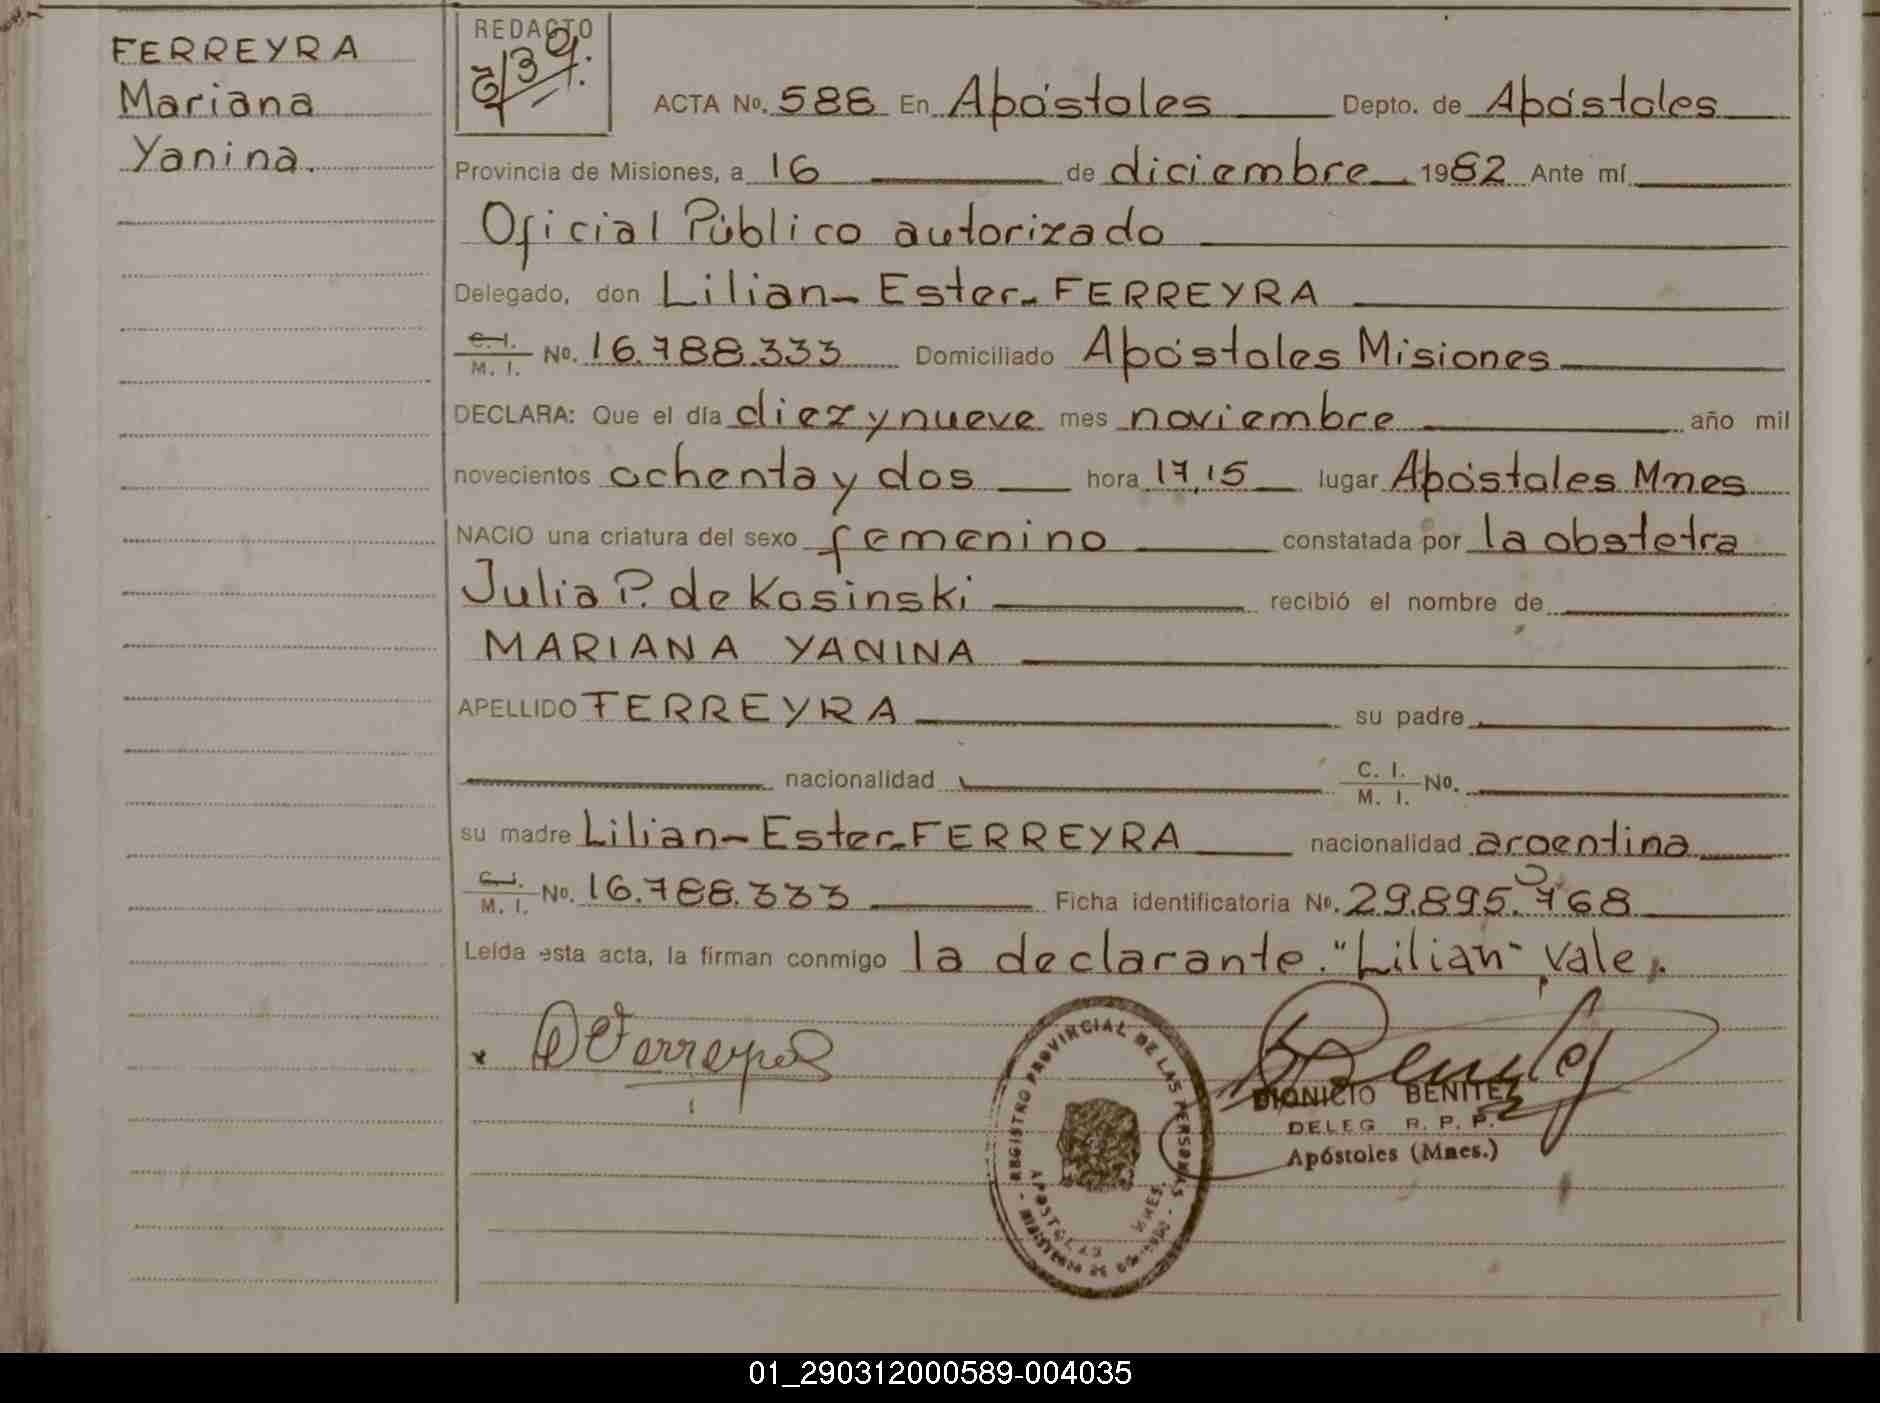 FERREYRA
Mariana
Yanina.
REDACTO
ACTA No. 586 En Apóstoles Depto. de Apóstoles
Provincia de Misiones, a 16 de diciembre 1982 Ante mí
Oficial Público autorizado
Delegado, don Lilian - Ester - FERREYRA
C. I. / M. I. No. 16.788.333 Domiciliado Apóstoles Misiones
DECLARA: Que el día diez y nueve mes noviembre año mil
novecientos ochenta y dos hora 17,15 lugar Apóstoles Mnes
NACIO una criatura del sexo femenino constatada por la obstetra
Julia P. de Kosinski recibió el nombre de
MARIANA YANINA
APELLIDO FERREYRA su padre
nacionalidad C. I. / M. I. No.
su madre Lilian - Ester - FERREYRA nacionalidad argentina
C. I. / M. I. No. 16.788.333 Ficha identificatoria No. 29.895.768
Leída esta acta, la firman conmigo la declarante. "Lilian" vale.
x Ferreyra
REGISTRO PROVINCIAL DE LAS PERSONAS
APOSTOLES MNES.
MINISTERIO DE GOBIERNO
DIONICIO BENITEZ
DELEG R. P. P.
Apóstoles (Mnes.)
01_290312000589-004035